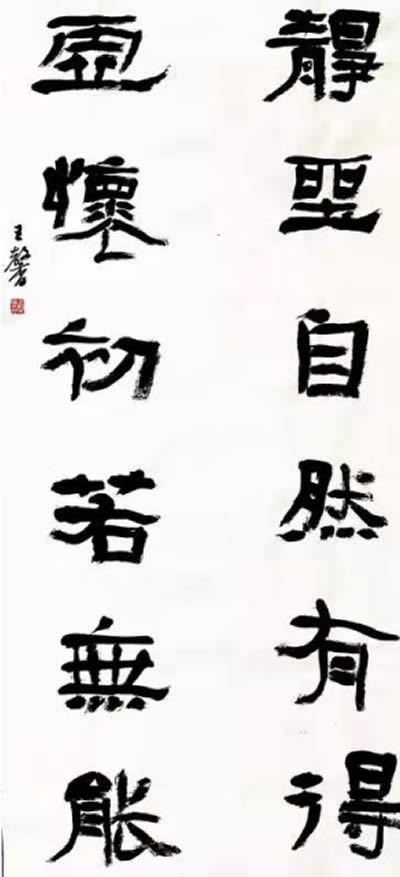 靜坐自然有得
虛懷初若無能
王馨